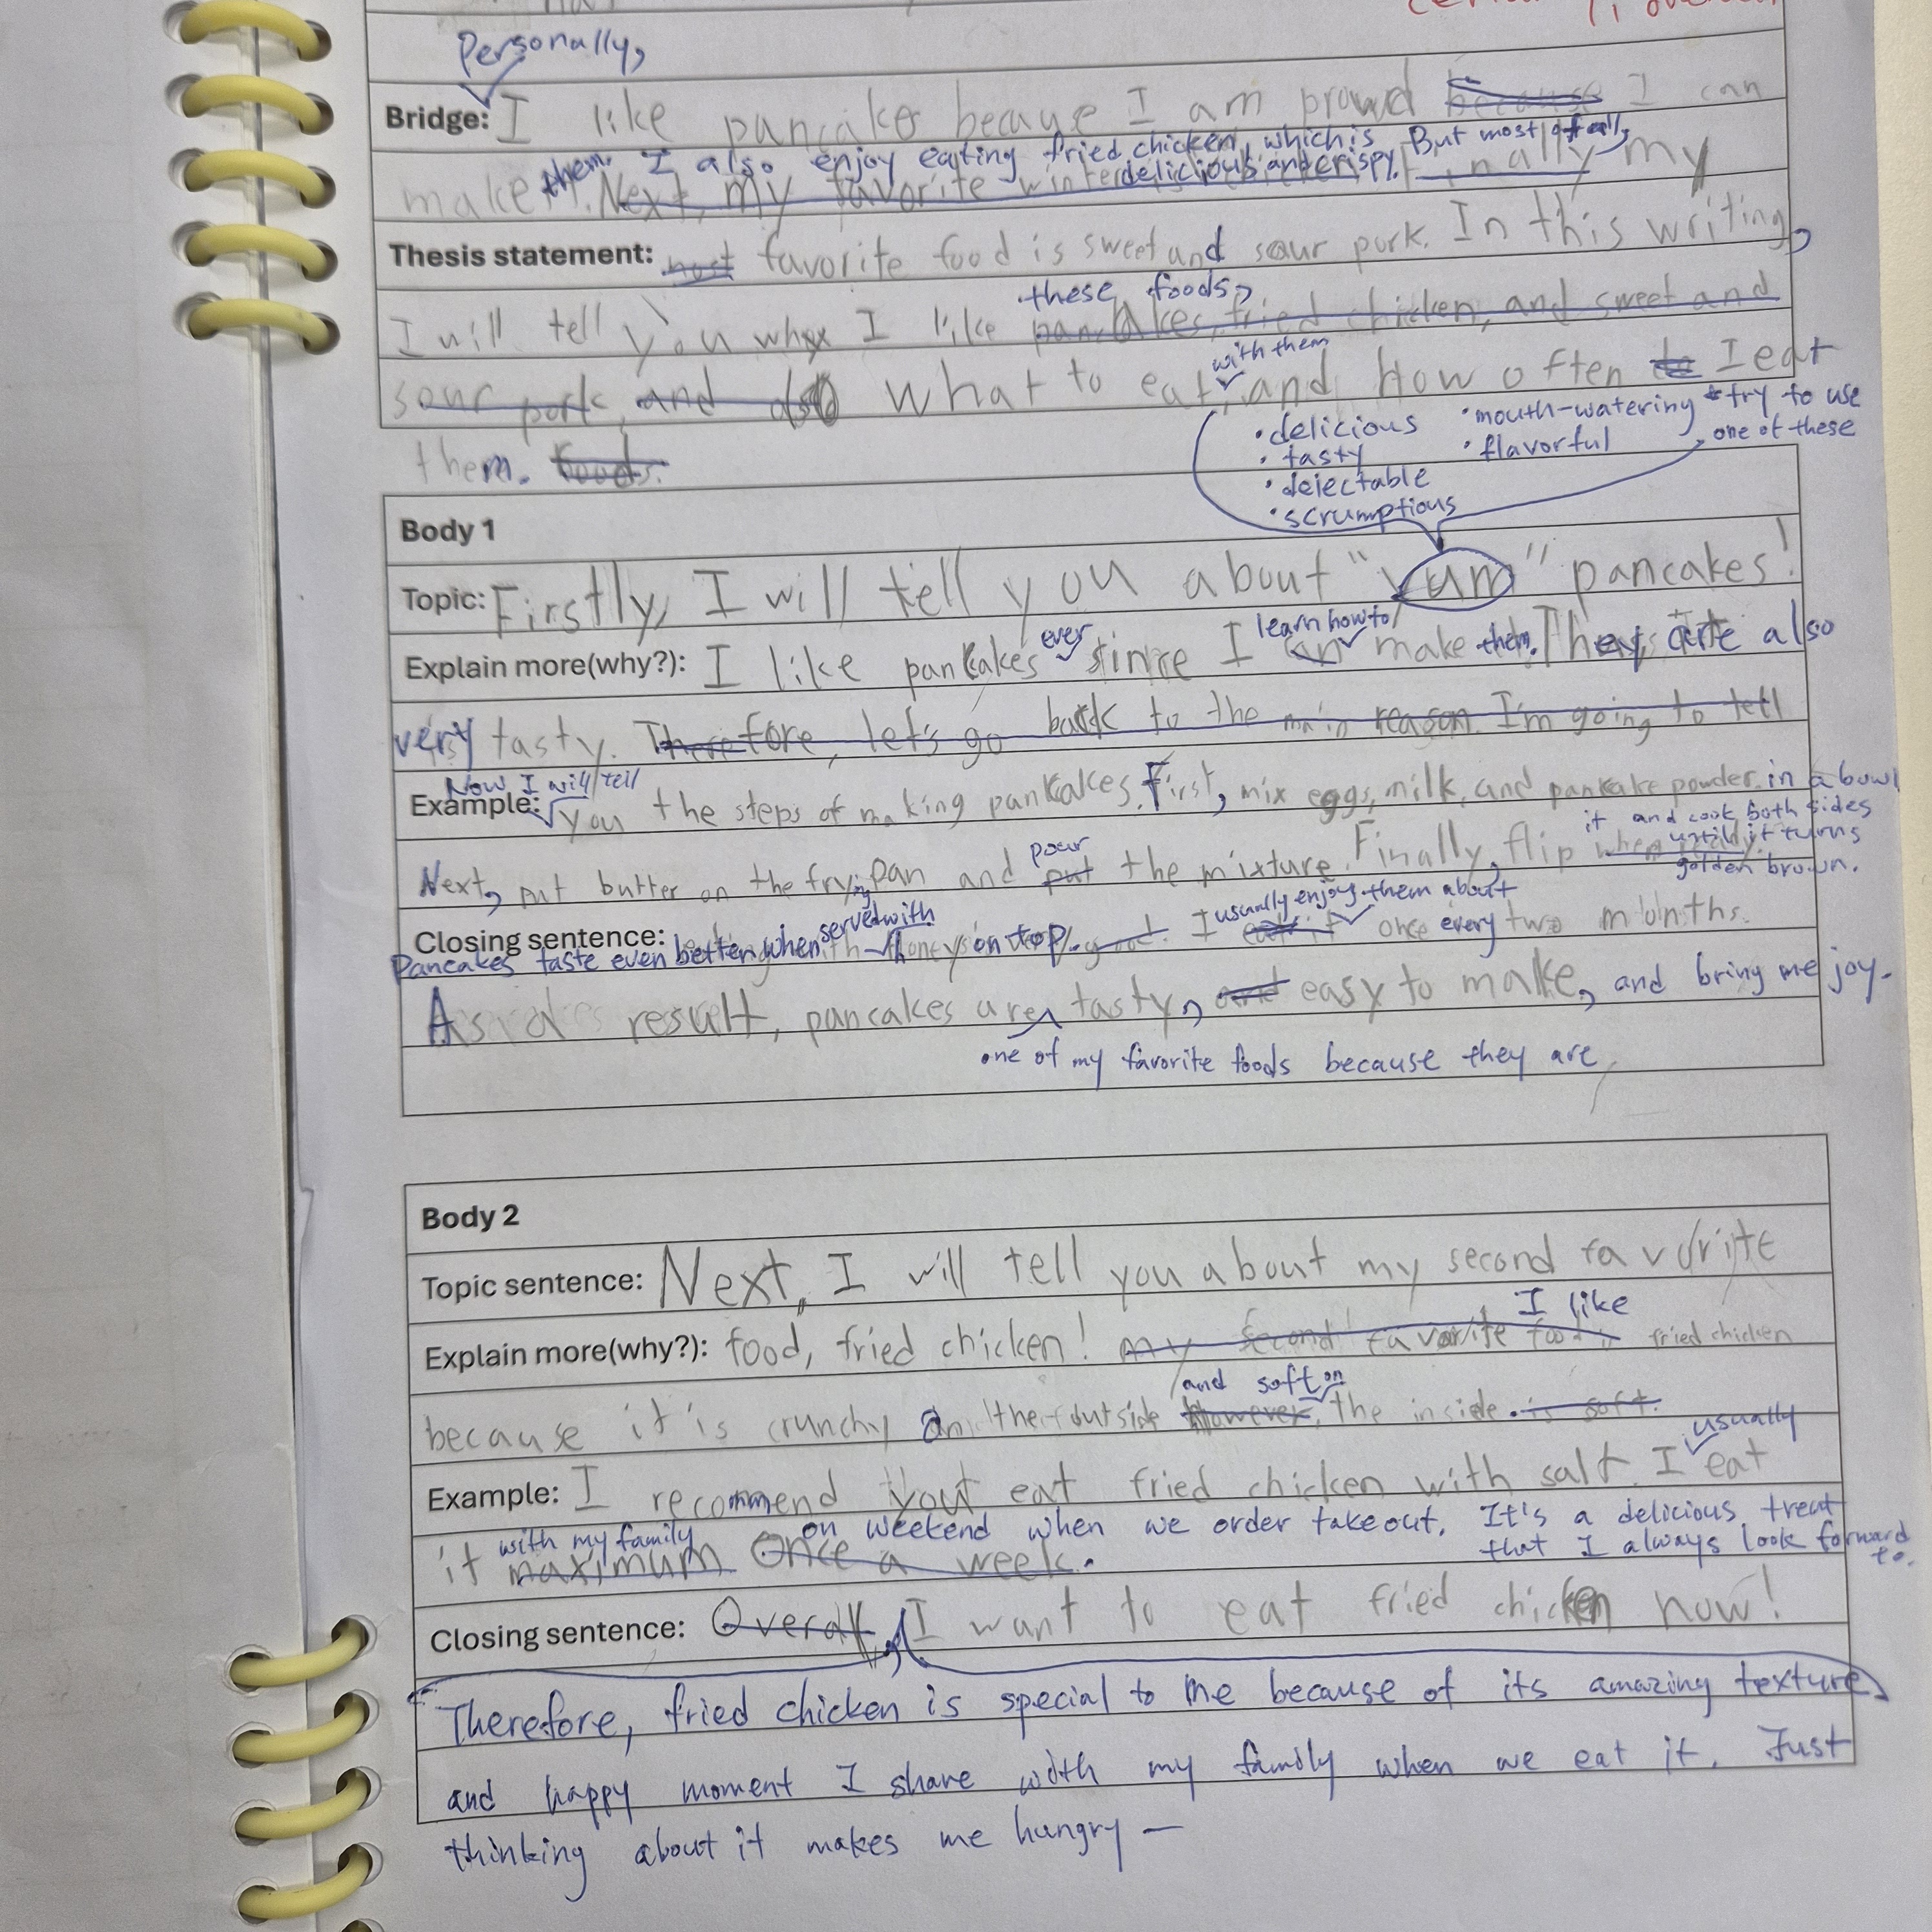 Personally,
Bridge: I like pancake because I am proud because I can
them. I also enjoy eating fried chicken, which is But most of all,
delicious and crispy.
make Next, my favorite winter my
Thesis statement: most favorite food is sweet and sour pork. In this writing,
these foods,
I will tell you why I like pancakes, fried chicken, and sweet and
with them
sour pork, and also what to eat, and how often to I eat
them. foods.
• delicious • mouth-watering * try to use
• tasty • flavorful one of these
• delectable
• scrumptious
Body 1
Topic: Firstly, I will tell you about "yum" pancakes!
ever learn how to
Explain more(why?): I like pancakes since I can make them. They are also
very tasty. Therefore, let's go back to the main reason. I'm going to tell
Now I will tell
Example: you the steps of making pancakes. First, mix eggs, milk, and pancake powder in a bowl
it and cook both sides
until it turns
golden brown.
pour
Next, put butter on the frying pan and put the mixture. Finally, flip when
served with usually enjoy them about
Closing sentence: honey on top. I eat it once every two months.
Pancakes taste even better when
As a result, pancakes are tasty, and easy to make, and bring me joy.
one of my favorite foods because they are
Body 2
Topic sentence: Next, I will tell you about my second favorite
I like
Explain more(why?): food, fried chicken! my second favorite food is fried chicken
and soft on
because it is crunchy on the outside However, the inside. is soft.
usually
Example: I recommend you eat fried chicken with salt. I eat
with my family on weekend when we order takeout. It's a delicious treat
that I always look forward to.
it maximum Once a week.
Closing sentence: Overall, I want to eat fried chicken now!
Therefore, fried chicken is special to me because of its amazing texture
and happy moment I share with my family when we eat it. Just
thinking about it makes me hungry —